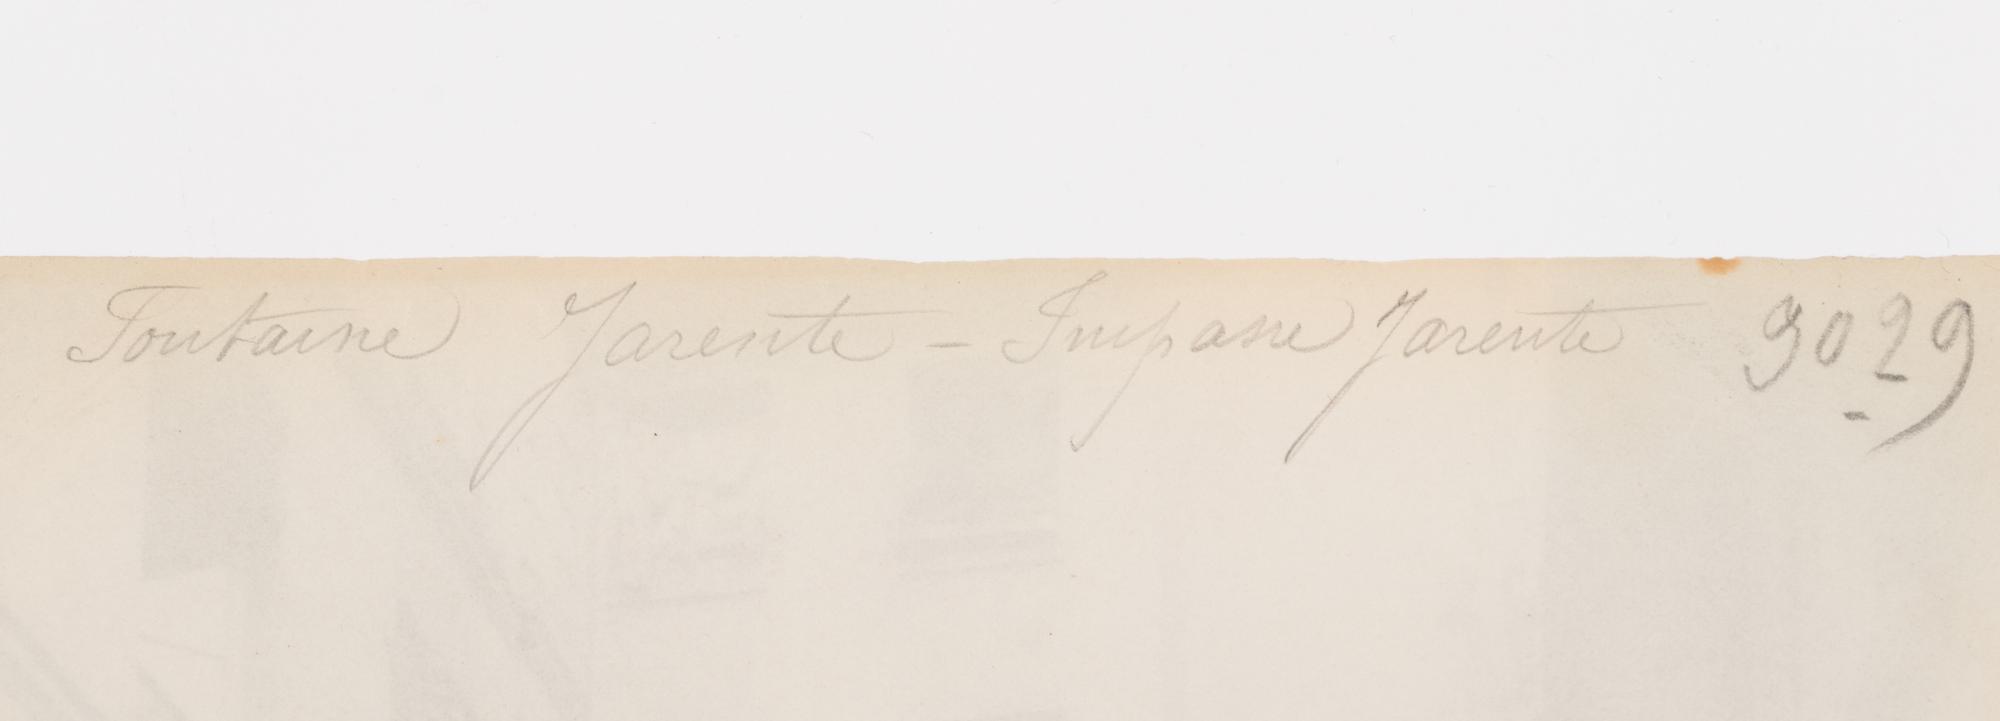 Fontaine Jarente - Impasse Jarente 9029